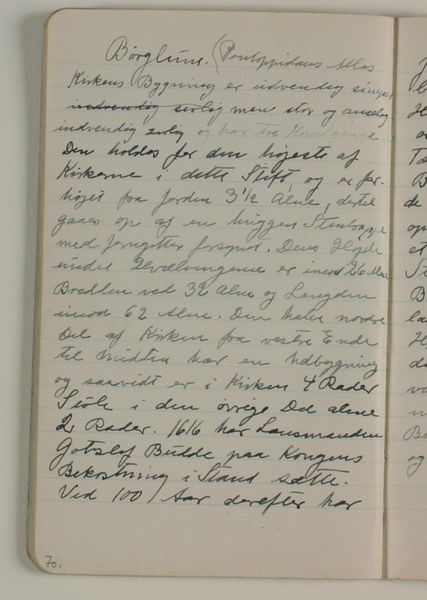 Børglum. (Pontoppidans Atlas
Kirkens Bygning er udvendig simpel
indvendig zirlig men stor og anselig
indvendig zirlig og har tre
Den holdes for den højeste af
Kirkerne i dette Stift, og er for-
højet fra Jorden 3½ Alne, dertil
gaaes op af en huggen Stentrappe
med Jerngitter forsynet. Dens Højde
under Hvælvingerne er imod 26 Alne
Bredden ved 32 Alne og Længden
imod 62 Alne. Den halve nordre
Del af Kirken fra vestre Ende
til Midten har en Udbygning
og saavidt er i Kirken 4 Rader
Stole i den øvrige Del alene
2 Rader. 1616 har Lensmanden
Gotslef Budde paa Kongens
Bekostning i Stand sætte.
Ved 100 Aar derefter har
70.